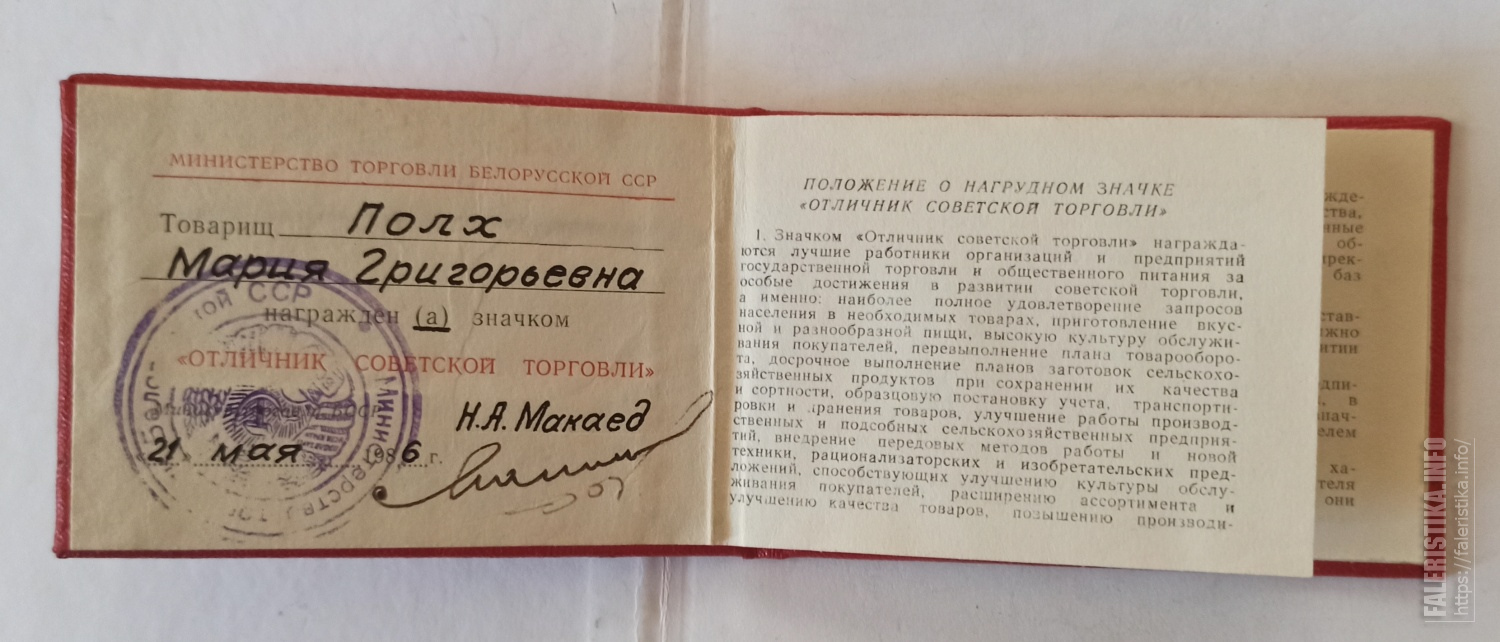 МИНИСТЕРСТВО ТОРГОВЛИ БЕЛОРУССКОЙ ССР
Товарищ Полх
Мария Григорьевна
награжден (а) значком
«ОТЛИЧНИК СОВЕТСКОЙ ТОРГОВЛИ»
Н.А. Макаед
21 мая 1986 г.
ПОЛОЖЕНИЕ О НАГРУДНОМ ЗНАЧКЕ
«ОТЛИЧНИК СОВЕТСКОЙ ТОРГОВЛИ»
1. Значком «Отличник советской торговли» награжда-
ются лучшие работники организаций и предприятий
государственной торговли и общественного питания за
особые достижения в развитии советской торговли,
а именно: наиболее полное удовлетворение запросов
населения в необходимых товарах, приготовление вкус-
ной и разнообразной пищи, высокую культуру обслужи-
вания покупателей, перевыполнение плана товарооборо-
та, досрочное выполнение планов заготовок сельскохо-
зяйственных продуктов при сохранении их качества
и сортности, образцовую постановку учета, транспорти-
ровки и хранения товаров, улучшение работы производ-
ственных и подсобных сельскохозяйственных предприя-
тий, внедрение передовых методов работы и новой
техники, рационализаторских и изобретательских пред-
ложений, способствующих улучшению культуры обслу-
живания покупателей, расширению ассортимента и
улучшению качества товаров, повышению производи-
FALERISTIKA.INFO
https://faleristika.info/